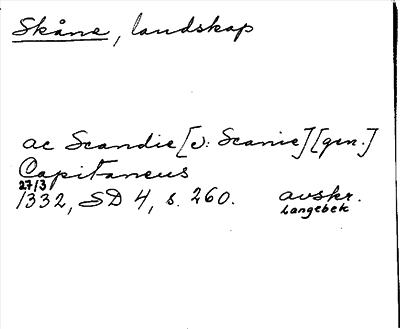 Skåne, landskap
ac Scandie [ɔ: Scanie] [gen.]
Capitaneus
27/3
1332, SD 4, s. 260. avskr.
Langebek